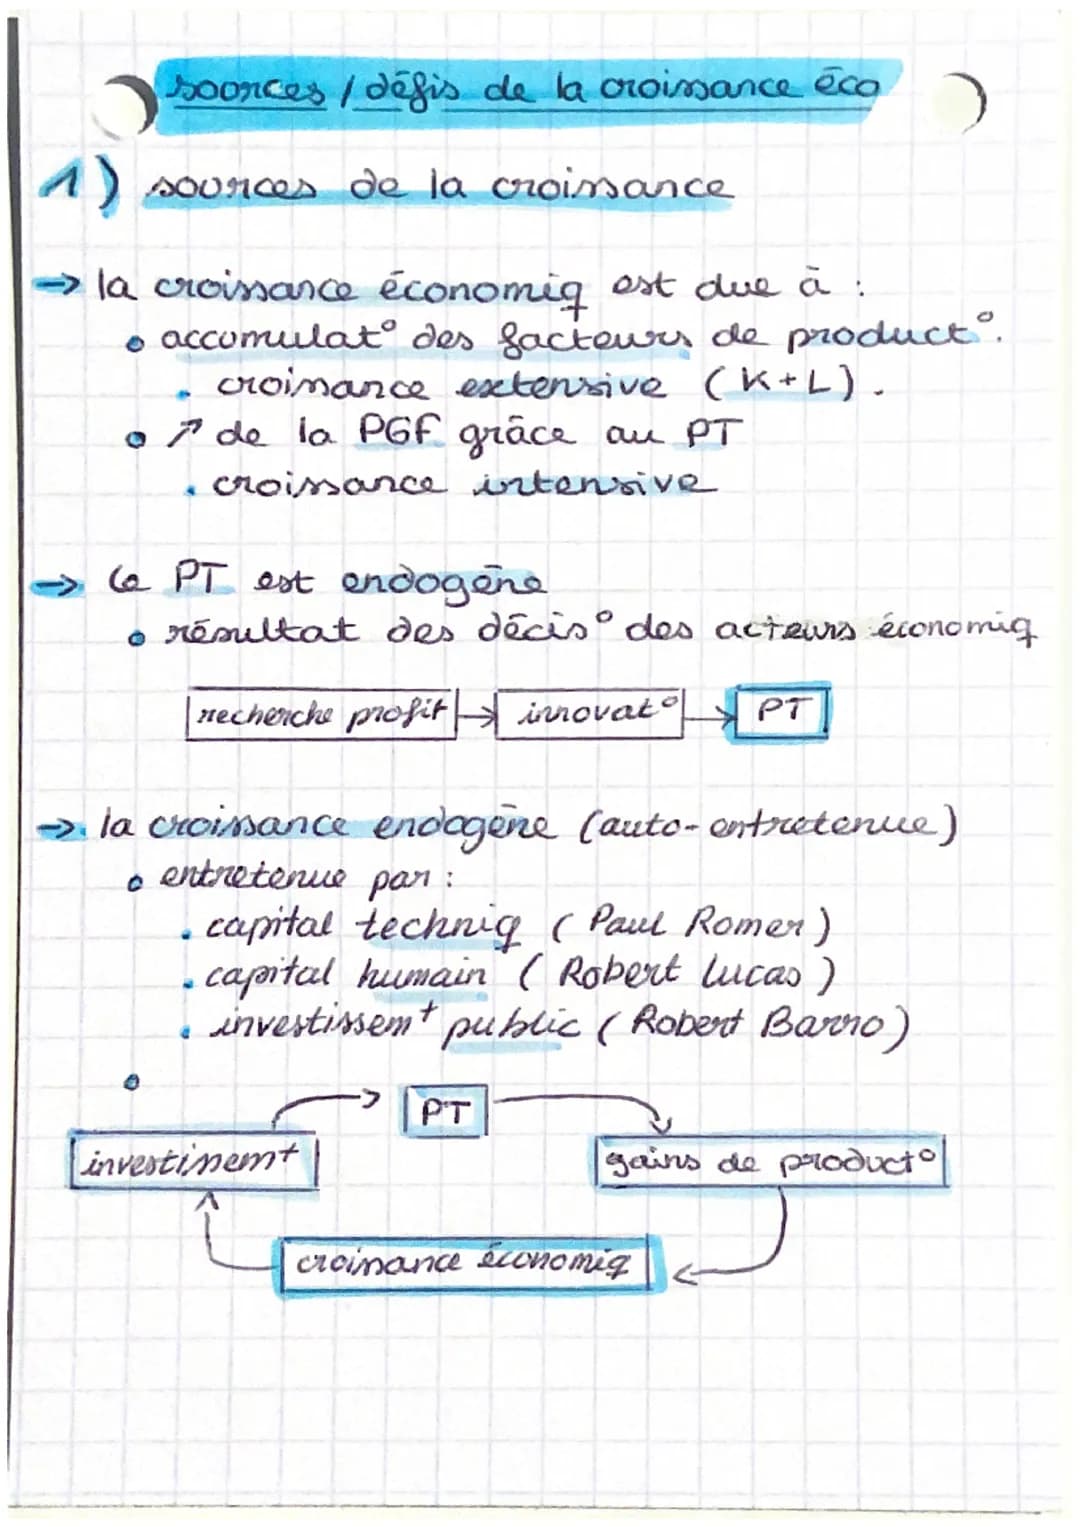 sources / défis de la croissance éco
1) sources de la croissance
→ la croissance économiq est due à :
accumulat° des facteurs de product°.
croissance extensive (K+L).
↗ de la PGF grâce au PT
croissance intensive
→ le PT est endogène
résultat des décis° des acteurs économiq
recherche profit → innovat° → PT
→ la croissance endogène (auto-entretenue)
entretenue par :
capital techniq (Paul Romer)
capital humain (Robert Lucas)
investissemt public (Robert Barro)
PT
investissemt
gains de product°
croissance économiq